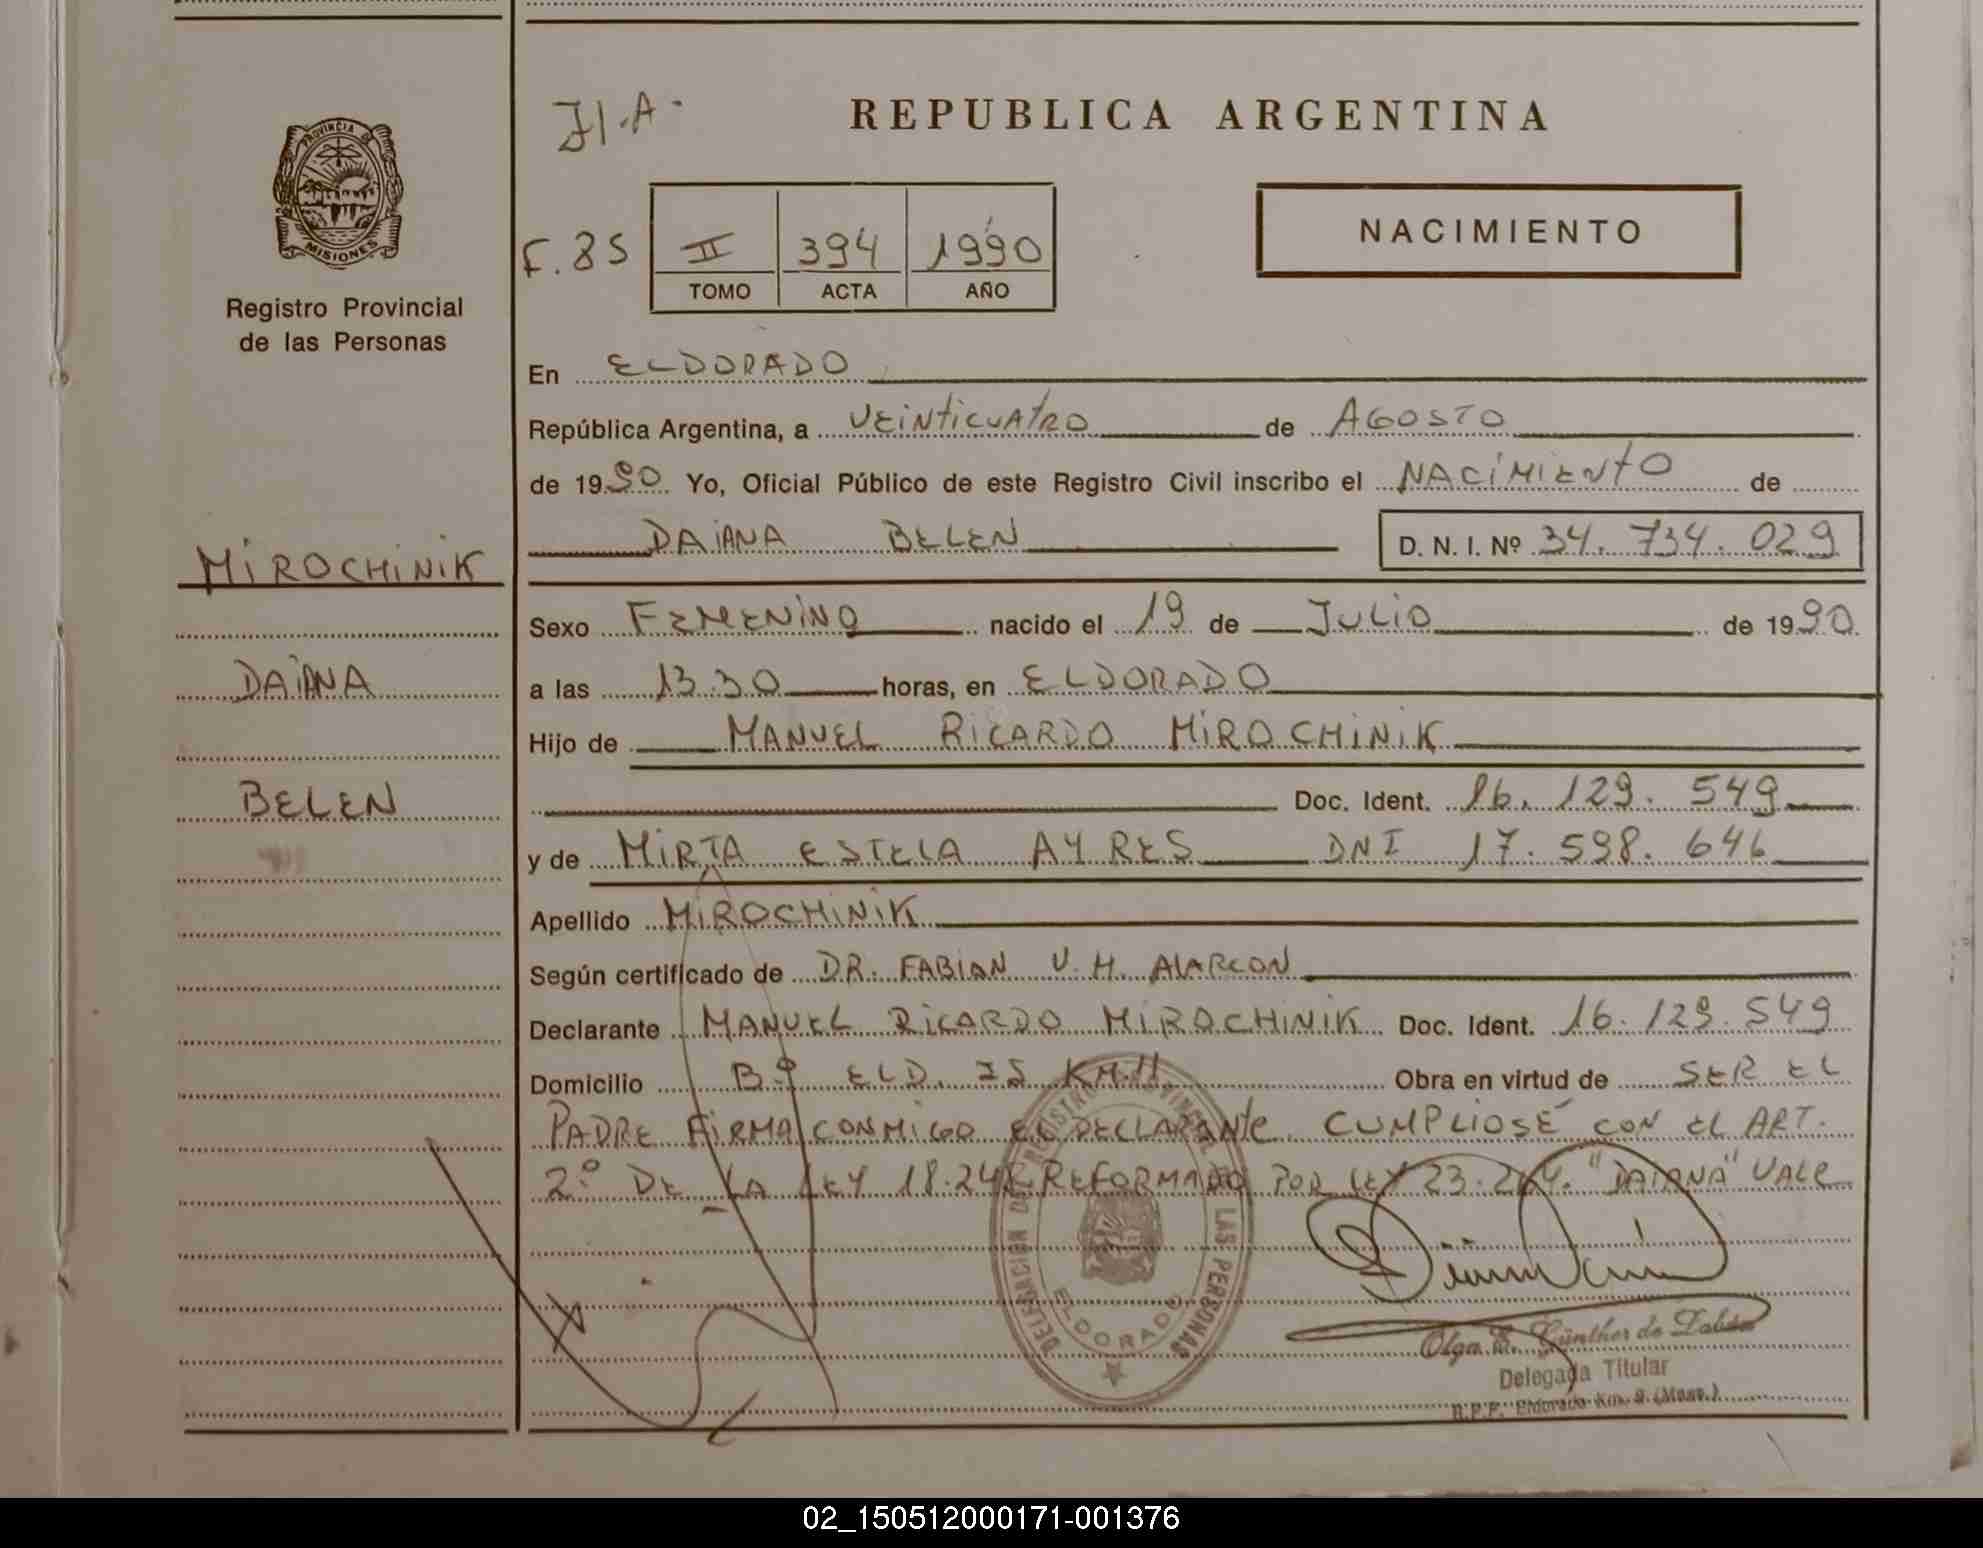 J1.A.
REPUBLICA ARGENTINA
PROVINCIA DE
MISIONES
Registro Provincial
de las Personas
F. 85
II 394 1990
TOMO ACTA AÑO
NACIMIENTO
En ELDORADO
República Argentina, a VEINTICUATRO de AGOSTO
de 1990 Yo, Oficial Público de este Registro Civil inscribo el NACIMIENTO de
DAIANA BELEN D. N. I. Nº 34.734.029
MIROCHINIK
DAIANA
BELEN
Sexo FEMENINO nacido el 19 de JULIO de 1990
a las 13.30 horas, en ELDORADO
Hijo de MANUEL RICARDO MIROCHINIK
Doc. Ident. 16.129.549
y de MIRTA ESTELA AYRES DNI 17.598.646
Apellido MIROCHINIK
Según certificado de DR. FABIAN V. H. ALARCON
Declarante MANUEL RICARDO MIROCHINIK Doc. Ident. 16.129.549
Domicilio Bº ELD. 75 KM.11. Obra en virtud de SER EL
PADRE FIRMA CONMIGO EL DECLARANTE. CUMPLIOSE CON EL ART.
2º DE LA LEY 18.248 REFORMADO POR LEY 23.264. "DAIANA" VALE
DELEGACION DEL REGISTRO PROVINCIAL DE LAS PERSONAS
ELDORADO
Olga Günther de
Delegada Titular
R.P.P. Eldorado Km. 9 (Mnes.)
02_150512000171-001376